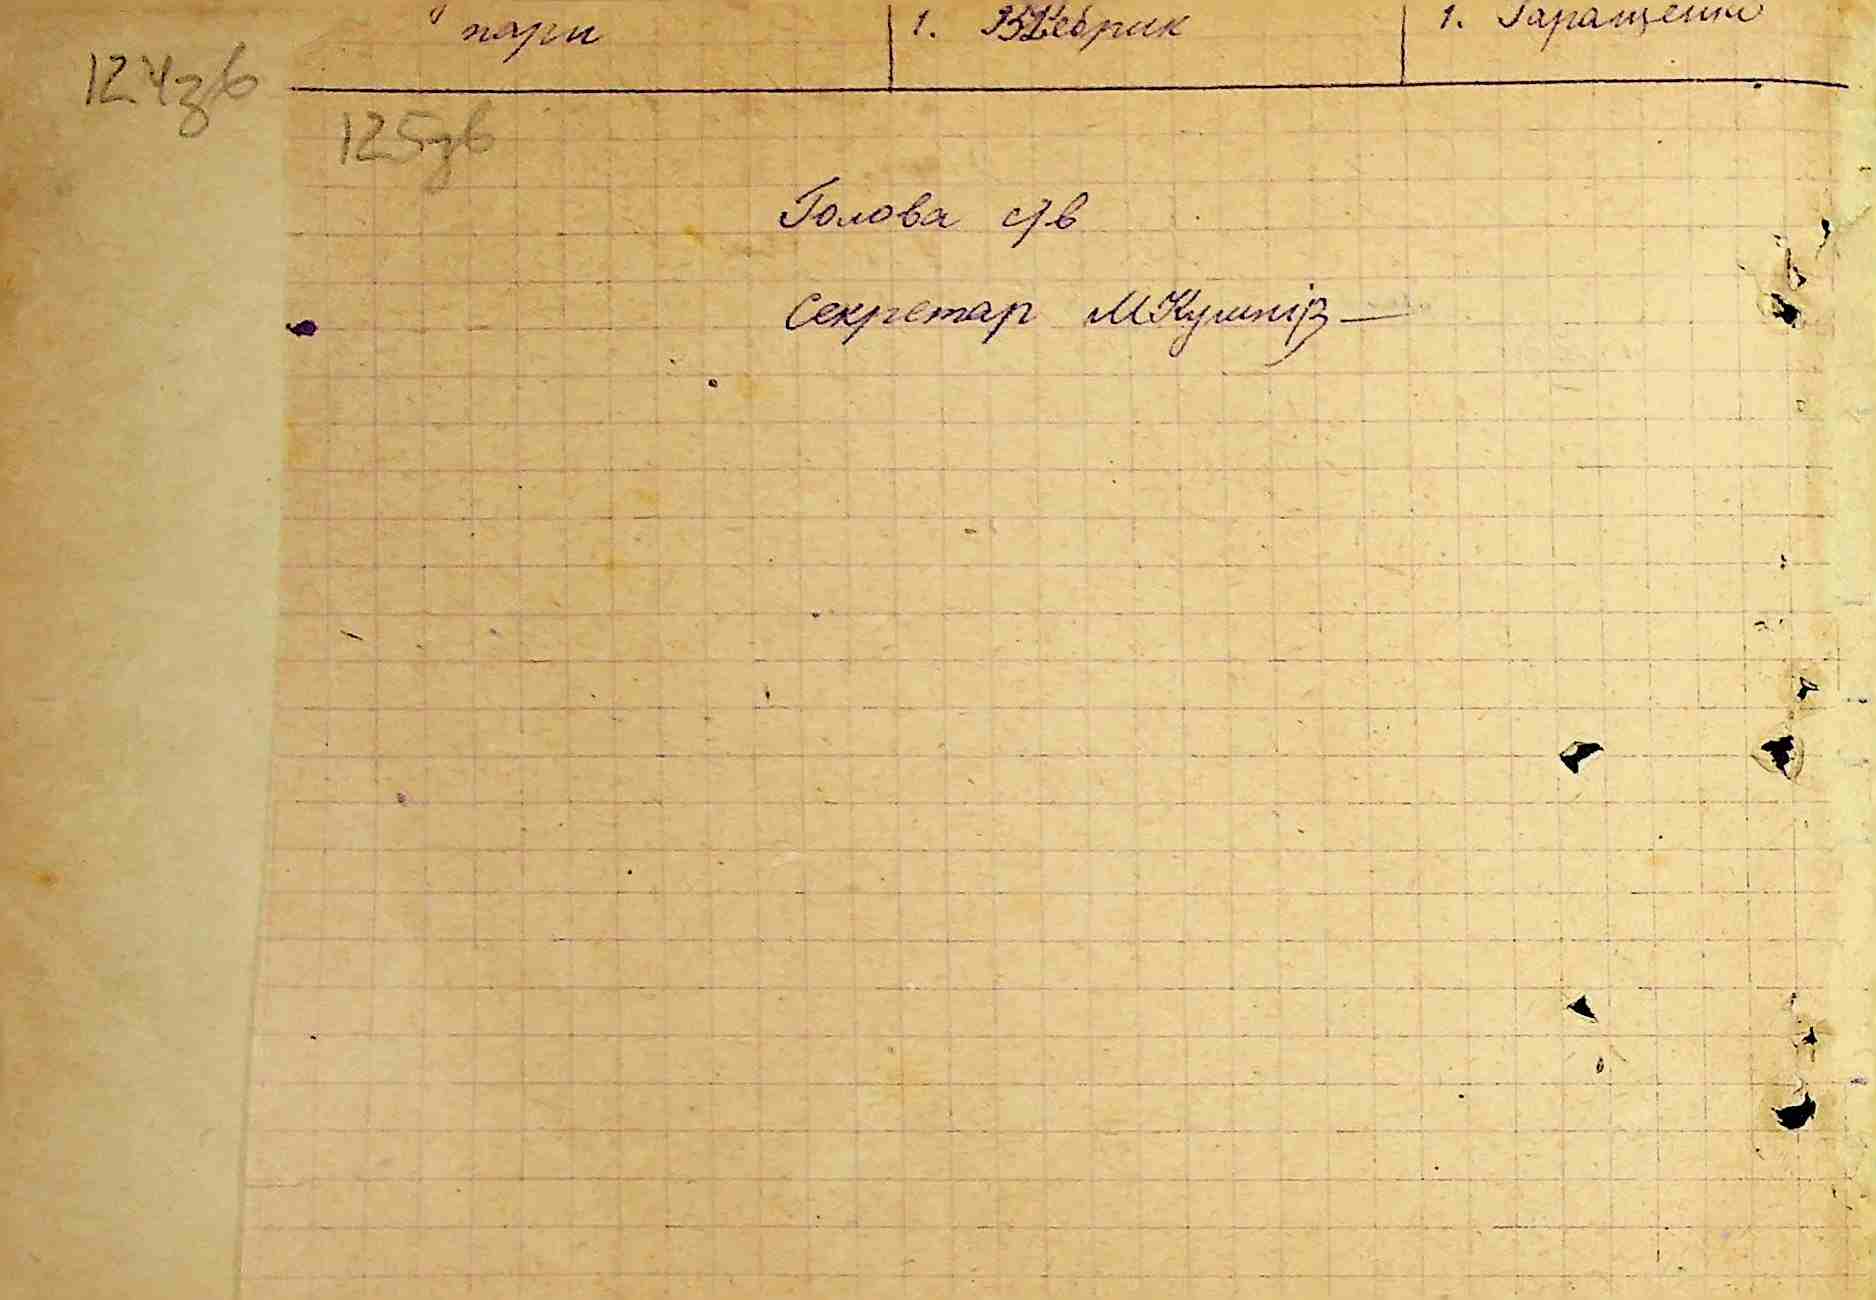 пари 1. 1. Гаращенко
124зв
125зв
Голова с/в
Секретар МКушнір